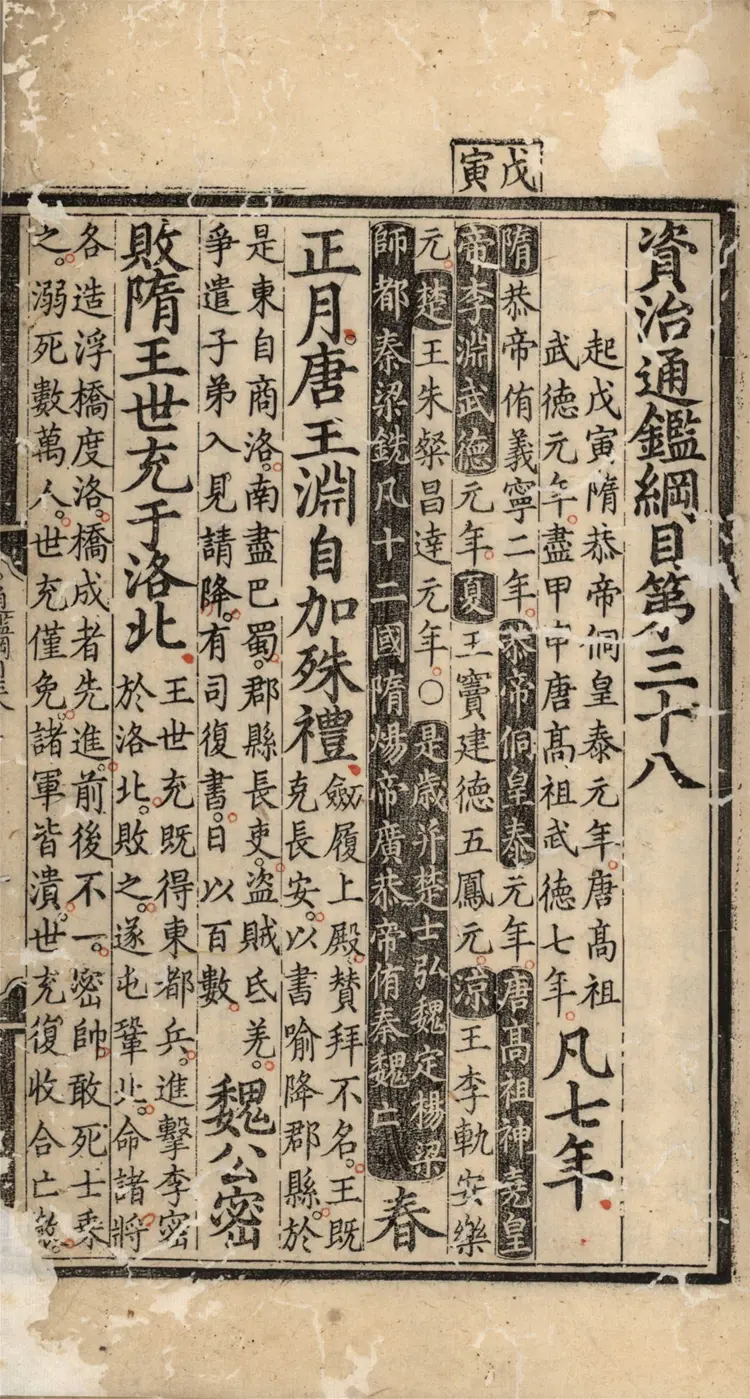 戊寅
資治通鑑綱目第三十八
起戊寅隋恭帝侗皇泰元年唐髙祖
武德元年盡甲申唐髙祖武德七年
凡七年
隋恭帝侑義寧二年恭帝侗皇泰元年唐髙祖神堯皇
帝李淵武德元年夏王竇建德五鳳元涼王李軌安樂
元楚王朱粲昌達元年○是歲并楚士弘魏定楊梁
師都秦梁銑凡十二國隋煬帝廣恭帝侑秦魏
春
正月唐王淵自加殊禮
劔履上殿贊拜不名王既
克長安以書喻降郡縣於
是東自商洛南盡巴蜀郡縣長吏盜賊氐羌
爭遣子弟入見請降有司復書日以百數
魏公密
敗隋王世充于洛北
王世充既得東都兵進擊李密
於洛北敗之遂屯鞏北命諸將
各造浮橋度洛橋成者先進前後不一密帥敢死士乘
之溺死數萬人世充僅免諸軍皆潰世充復收合亡